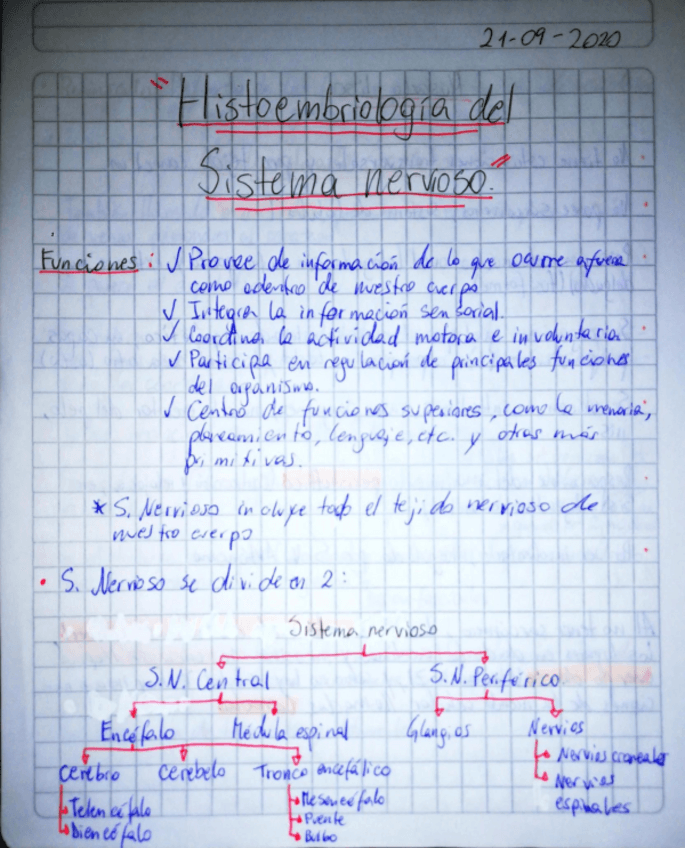 21-09-2020
"Histoembriología del
Sistema nervioso."
Funciones: ✓ Provee de información de lo que ocurre afuera
como adentro de nuestro cuerpo
✓ Integra la información sensorial.
✓ Coordina la actividad motora e involuntaria
✓ Participa en regulación de principales funciones
del organismo.
✓ Centro de funciones superiores, como la memoria,
planeamiento, lenguaje, etc. y otras más
primitivas.
* S. Nervioso incluye todo el tejido nervioso de
nuestro cuerpo
• S. Nervioso se divide en 2:
Sistema nervioso
S.N. Central S.N. Periférico
Encéfalo Médula espinal Glangios Nervios
Cerebro Cerebelo Tronco encefálico Nervios craneales
Telencéfalo Mesencéfalo Nervios
Diencéfalo Puente espinales
Bulbo